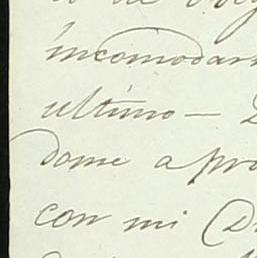 incomodar
ultimo—
dome a pro
con mi (D